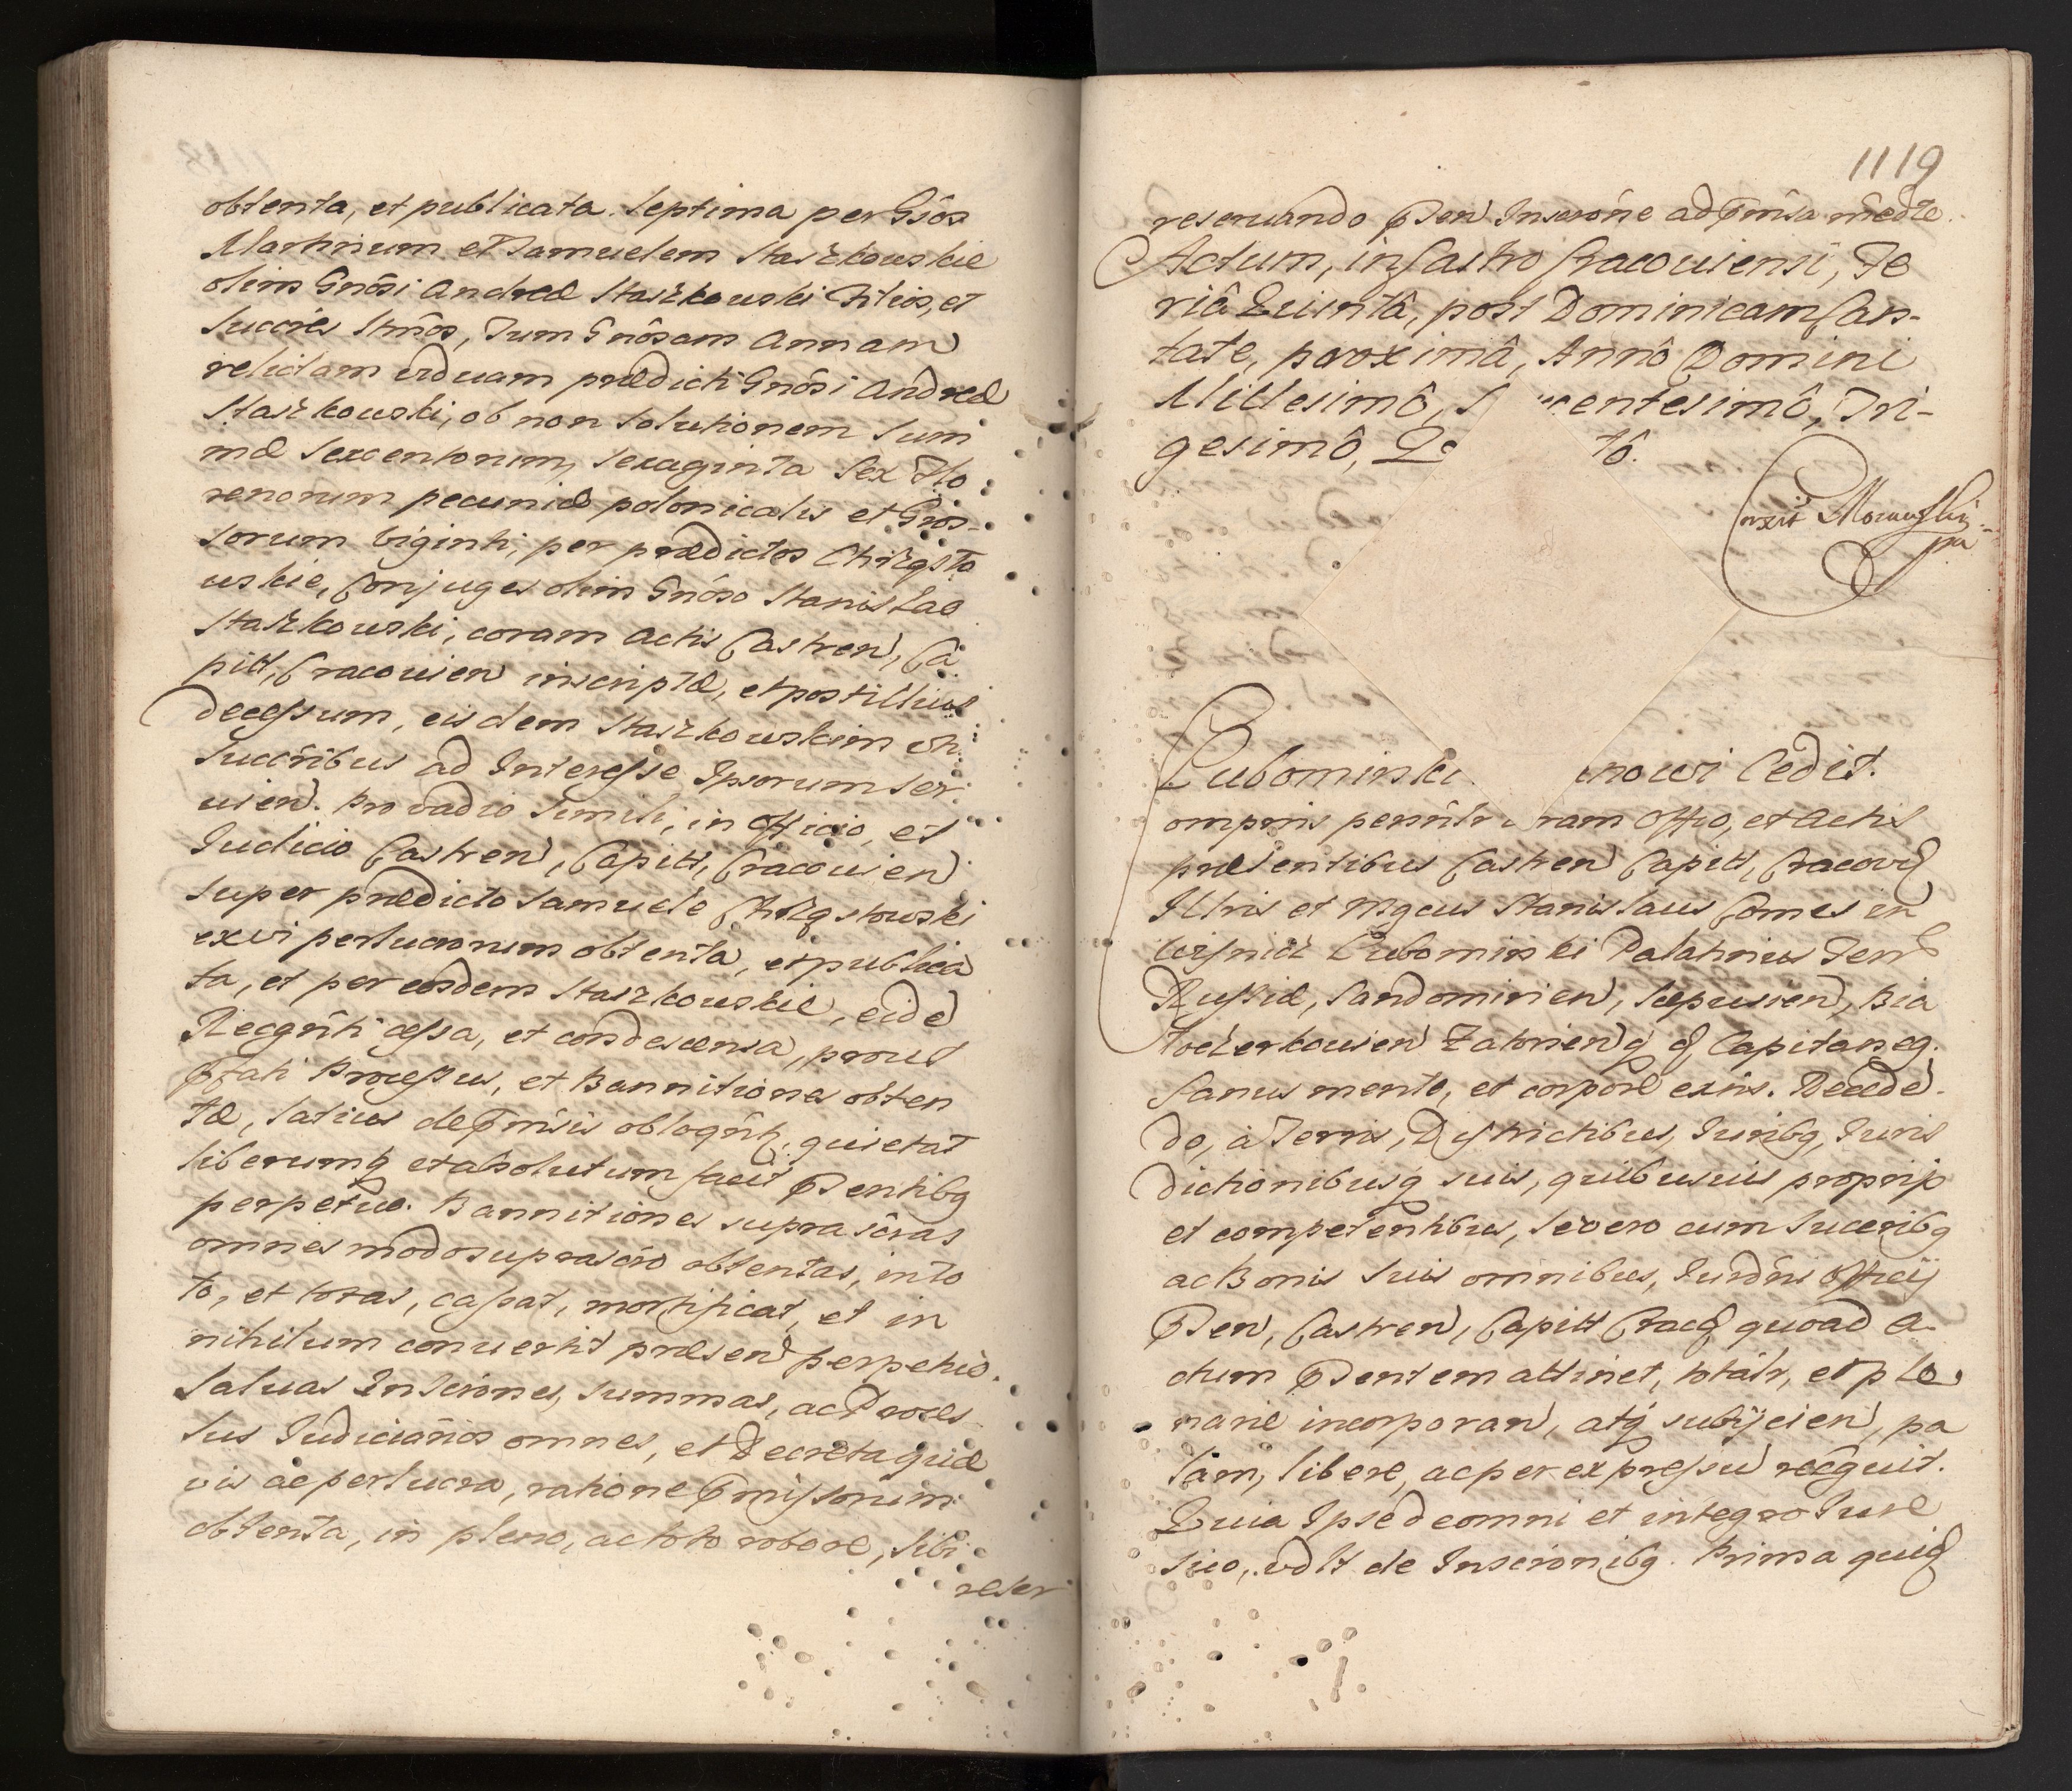 obtenta, et publicata. Septima per Gñôs
Martinum et Samuelem Staszkowskie
olim Gnôsi Andreæ Staszkowski Filios, et
Succres Ittños, Tum Gnôsam Annam
relictam viduam prædicti Gnôsi Andreæ
Staszkowski, ob non solutionem Sum
mæ Sexcentorum, Sexaginta Sex Flo
renorum pecuniæ polonicalis et Gros-
sorum Viginti, per prædictos
uskie, Conjuges olim Gnôso Stanislao
Staszkowski, coram Actis Castren, Ca
pitt, Cracovien inscriptæ, et post illius
decessum, eisdem Staszkowskim uti
Succribus ad Interesse Ipsorum ser
vien. Pro vadio simili, in officio, et
Iudicio Castren, Capitt, Cracovien
super prædicto Samuele
ex vi perlucrorum obtenta, et publica
ta, et per eosdem Staszkowskie, eidē
Recgñti cessa, et condescensa, prout
Processus, et Bannitiones obten
tæ, latius de Præmisis obloqñtr, quietat
liberumq et absolutum facit Pentibg
perpetuo. Bannitiones supra scras
omnes modo suprascro obtentas, in to
to, et totas, cassat, mortificat, et in
nihilum convertit præsen perpetuo.
Salvas Inscrones, summas, ac Proces-
sus Iudiciarios omnes, et Decreta quæ
vis ac perlucra, ratione Præmissorum
obtenta, in pleno, ac toto robore, sibi
reser
1119
reservando Pen Inscrone ad Præmisa medte.
Actum, in Castro Cracoviensi, Fe
riâ Quintâ, post Dominicam Can-
tate, proximâ, Annô Domini
Millesimô, S entesimô, Tri-
gesimô, Qu tô.
Conxit
Lubominski nowi Cedit.
omparns persñlr ram Offo, et Actis
præsentibus Castren Capitt, Cracov
Illris et Mgcus Stanislaus Comes in
Wisnicz Lubominski Palatinus Terr
Russiæ, Sandomirien, Scepusien, Bia
Zatorien Capitaneg.
Sanus mente, et corpore exins. Recedē-
do, à Terris, Districtibus, Iuribg, Iuris
dictionibusq suis, quibusvis proprijs
et competentibus, se vero cum Succeribg
ac Bonis suis omnibus, Iurdñi Officij
Pen, Castren, Capitt Crac quoad a-
ctum Pentem attinet, totalr, et ple
narie incorporan, atq subijcien, pa
lam, libere, ac per expressū recgvit.
Quia Ipse de omni et integro Iure
suo, vdlt de Inscronibg. Prima quid